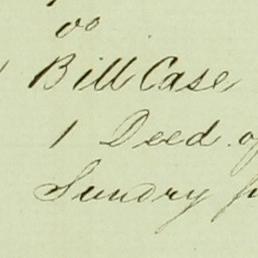 vs
Bill Case
1 Deed of
Sundry